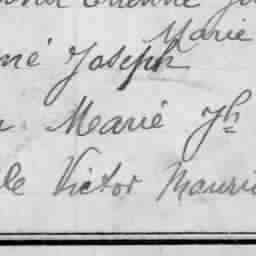 Etienne
Marie
né Joseph
Marie Jh
le Victor Mauri